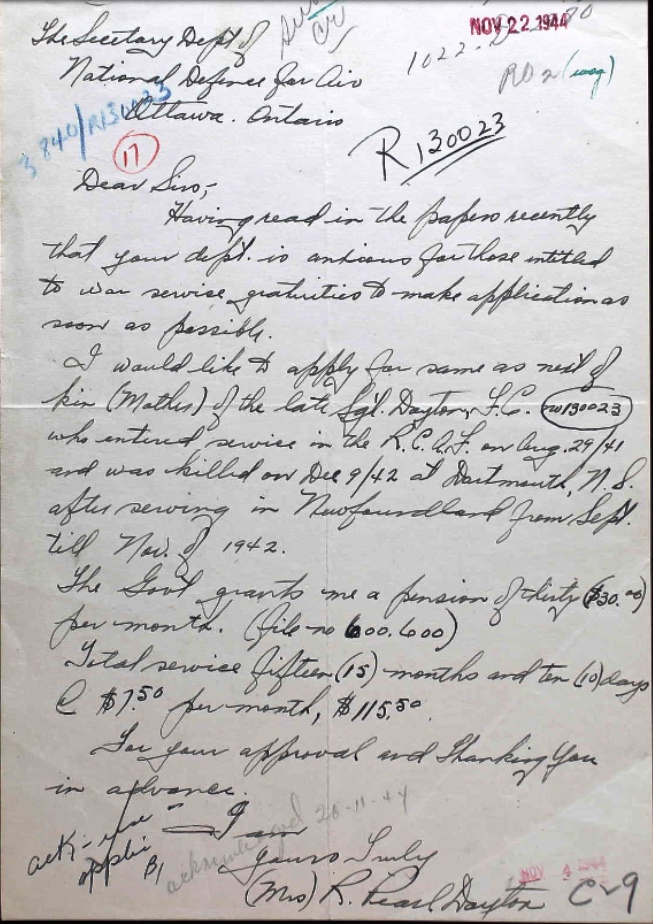 NOV 22 1944
The Secretary Dept of
National Defence for Air
Ottawa. Ontario
1022.
R02
R130023
3840/R130023
17
Dear Sirs,-
Having read in the papers recently
that your dept. is anxious for those intitled
to war service gratuities to make application as
soon as possible.
I would like to apply for same as next of
kin (Mother) of the late Sgt. Dayton, F.C. no 130023
who entered service in the R.C.A.F. on Aug. 29/41
and was killed on Dec 9/42 at Dartmouth, N.S.
after serving in Newfoundland from Sept.
till Nov. of 1942.
The Govt grants me a pension of thirty ($30.00)
per month. (file no 600.600)
Total service fifteen (15) months and ten (10) days
@ $7.50 per month, $115.50.
For your approval and Thanking You
in advance.
I am
Yours Truly
(Mrs) R. Pearl Dayton
acknowledged 28-11-44
B1
NOV 4 1944
C-9